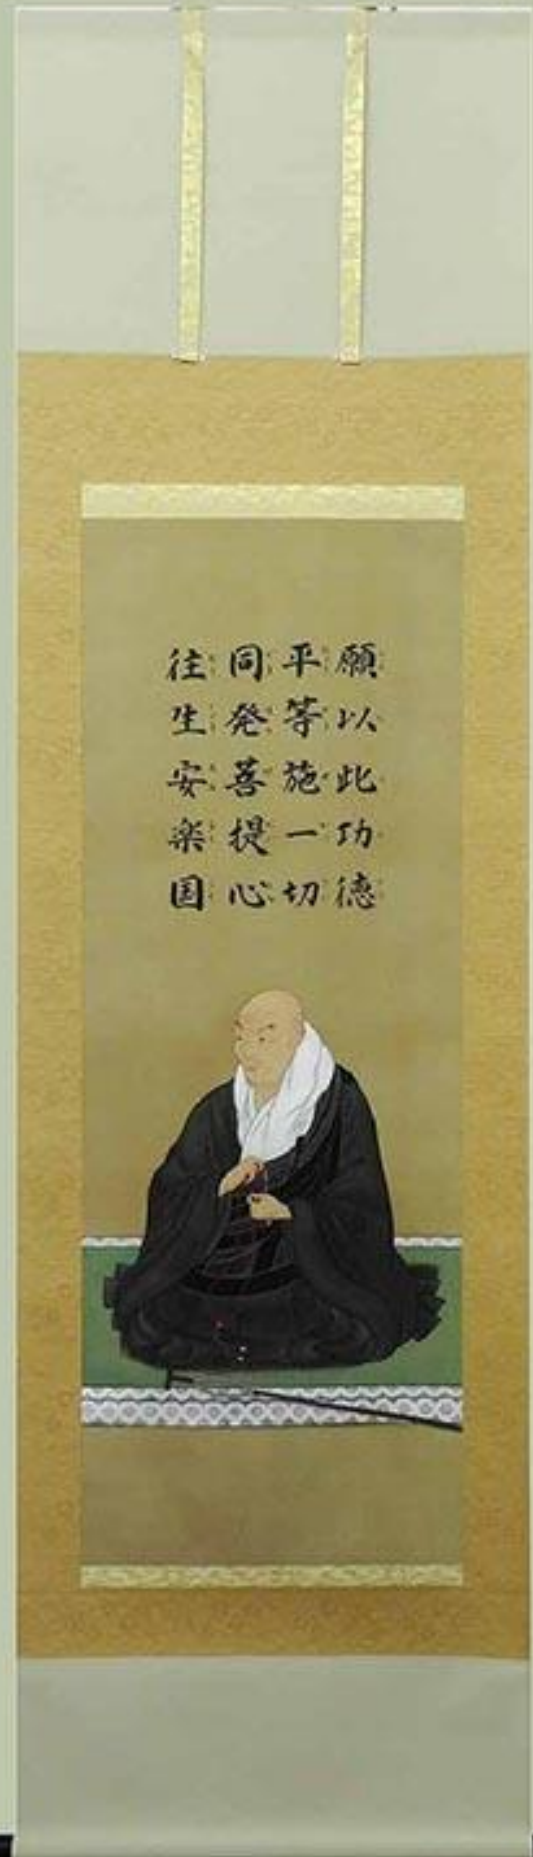 願以此功徳
平等施一切
同発菩提心
往生安楽国